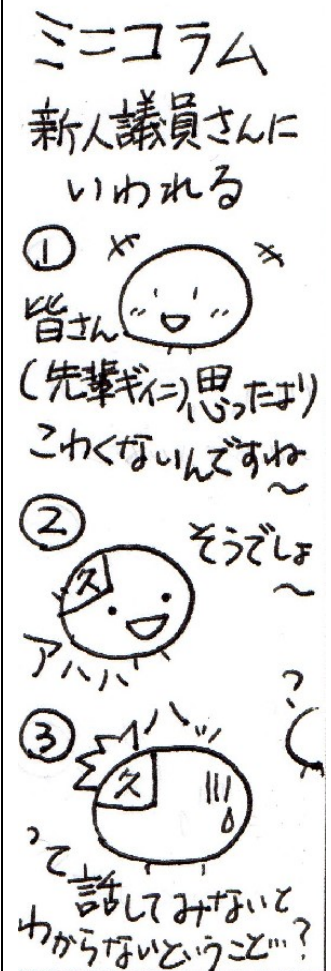 ミニコラム
新人議員さんに
いわれる
①
皆さん
(先輩ギイン)思ったより
こわくないんですね
〜
②
そうでしょ
〜
久
アハハ
③
ハッ
久
?
って話してみないと
わからないということ…?